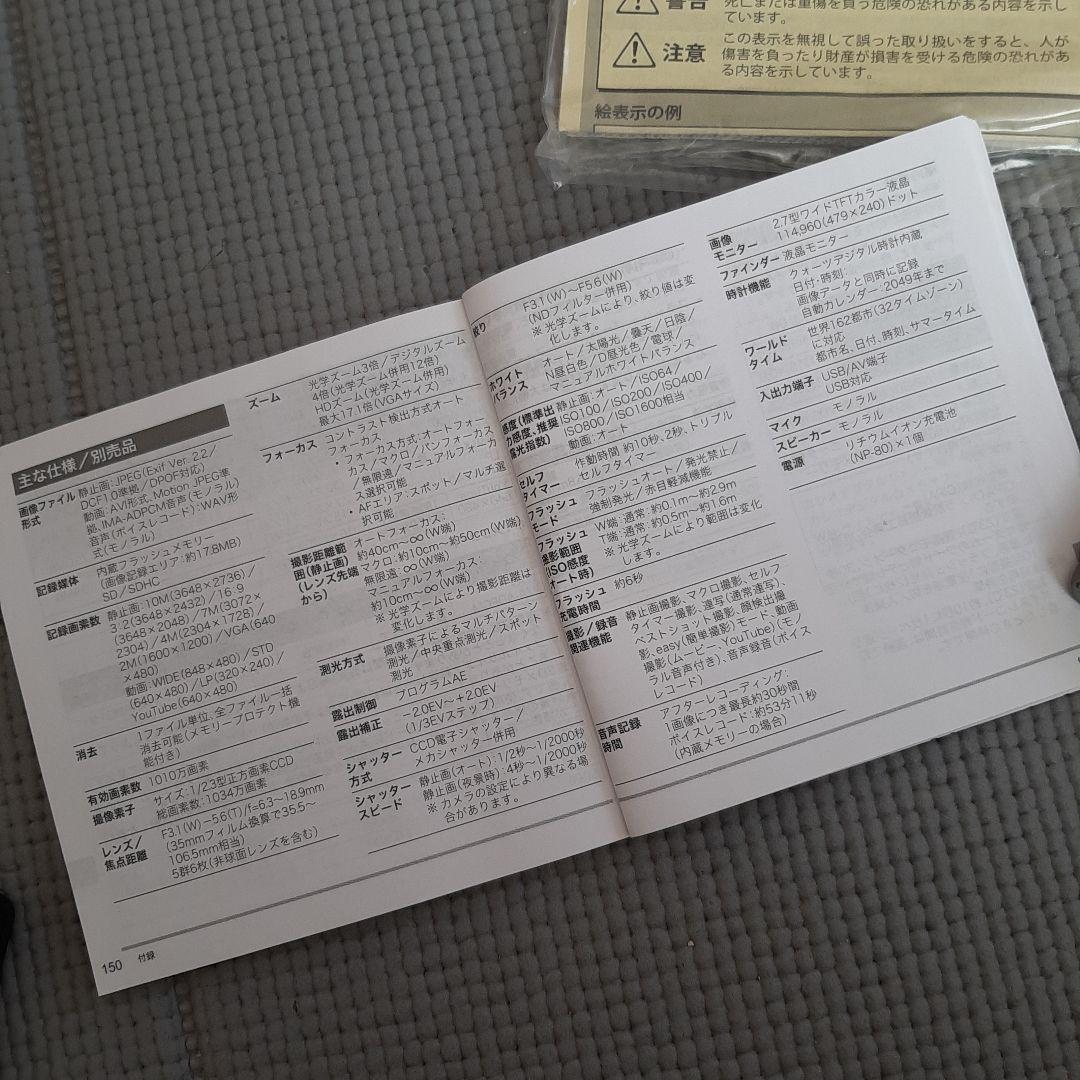 警告
死亡または重傷を負う危険の恐れがある内容を示し
ています。
注意
この表示を無視して誤った取り扱いをすると、人が
傷害を負ったり財産が損害を受ける危険の恐れがあ
る内容を示しています。
絵表示の例
主な仕様/別売品
画像ファイル
形式
静止画:JPEG(Exif Ver. 2.2/
DCF1.0準拠/DPOF対応)
動画:AVI形式、Motion JPEG準
拠、IMA-ADPCM音声(モノラル)
音声(ボイスレコード):WAV形
式(モノラル)
記録媒体
内蔵フラッシュメモリー
(画像記録エリア:約17.8MB)
SD/SDHC
記録画素数
静止画:10M(3648×2736)/
3:2(3648×2432)/16:9
(3648×2048)/7M(3072×
2304)/4M(2304×1728)/
2M(1600×1200)/VGA(640
×480)
動画:WIDE(848×480)/STD
(640×480)/LP(320×240)/
YouTube(640×480)
消去
1ファイル単位、全ファイル一括
消去可能(メモリープロテクト機
能付き)
有効画素数
1010万画素
撮像素子
サイズ:1/2.3型正方画素CCD
総画素数:1034万画素
レンズ/
焦点距離
F3.1(W)~5.6(T)/f=6.3~18.9mm
(35mmフィルム換算で35.5~
106.5mm相当)
5群6枚(非球面レンズを含む)
ズーム
光学ズーム3倍/デジタルズーム
4倍(光学ズーム併用12倍)
HDズーム(光学ズーム併用)
最大17.1倍(VGAサイズ)
フォーカス
コントラスト検出方式オート
フォーカス
・フォーカス方式:オートフォー
カス/マクロ/パンフォーカス
/無限遠/マニュアルフォーカ
ス選択可能
・AFエリア:スポット/マルチ選
択可能
撮影距離範
囲(静止画)
(レンズ先端
から)
オートフォーカス:
約40cm~∞(W端)
マクロ:約10cm~約50cm(W端)
無限遠:∞(W端)
マニュアルフォーカス:
約10cm~∞(W端)
※ 光学ズームにより撮影距離は
変化します。
測光方式
撮像素子によるマルチパターン
測光/中央重点測光/スポット
測光
露出制御
プログラムAE
露出補正
-2.0EV~+2.0EV
(1/3EVステップ)
シャッター
方式
CCD電子シャッター/
メカシャッター併用
シャッター
スピード
静止画(オート):1/2秒~1/2000秒
静止画(夜景時):4秒~1/2000秒
※ カメラの設定により異なる場
合があります。
150
付録
絞り
F3.1(W)~F5.6(W)
(NDフィルター併用)
※ 光学ズームにより、絞り値は変
化します。
ホワイト
バランス
オート/太陽光/曇天/日陰/
N昼白色/D昼光色/電球/
マニュアルホワイトバランス
感度(標準出
力感度、推奨
露光指数)
静止画:オート/ISO64/
ISO100/ISO200/ISO400/
ISO800/ISO1600相当
動画:オート
セルフ
タイマー
作動時間 約10秒、2秒、トリプル
セルフタイマー
フラッシュ
モード
フラッシュオート/発光禁止/
強制発光/赤目軽減機能
フラッシュ
撮影範囲
(ISO感度
オート時)
W端:通常:約0.1m~約2.9m
T端:通常:約0.5m~約1.6m
※ 光学ズームにより範囲は変化
します。
フラッシュ
充電時間
約6秒
撮影/録音
関連機能
静止画撮影、マクロ撮影、セルフ
タイマー撮影、連写(通常連写)、
ベストショット撮影、顔検出撮
影、easy(簡単撮影)モード、動画
撮影(ムービー、YouTube)(モノ
ラル音声付き)、音声録音(ボイス
レコード)
音声記録
時間
アフターレコーディング:
1画像につき最長約30秒間
ボイスレコード:約53分11秒
(内蔵メモリーの場合)
画像
モニター
2.7型ワイドTFTカラー液晶
114,960(479×240)ドット
ファインダー
液晶モニター
時計機能
クォーツデジタル時計内蔵
日付・時刻:
画像データと同時に記録
自動カレンダー:2049年まで
ワールド
タイム
世界162都市(32タイムゾーン)
に対応
都市名、日付、時刻、サマータイム
入出力端子
USB/AV端子
USB対応
マイク
モノラル
スピーカー
モノラル
電源
リチウムイオン充電池
(NP-80)×1個